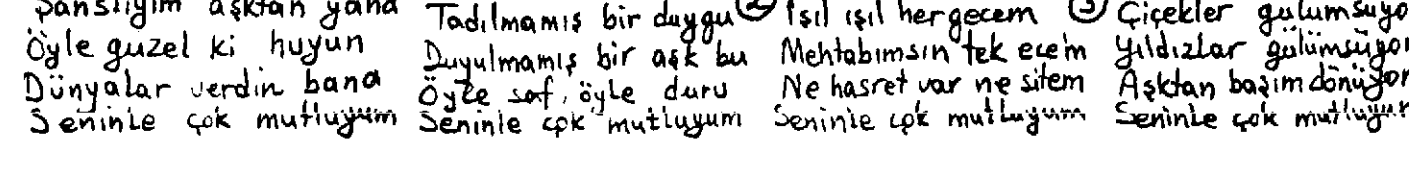 Şanslıyım aşktan yana
Öyle guzel ki huyun
Dünyalar verdin bana
Seninle çok mutluyum
Tadılmamış bir duygu
Duyulmamış bir aşk bu
Öyle saf, öyle duru
Seninle çok mutluyum
2 Işıl ışıl hergecem
Mehtabımsın tek ecem
Ne hasret var ne sitem
Seninle çok mutluyum
3 Çiçekler gülümsüyo
Yıldızlar gülümsüyor
Aşktan başım dönüyor
Seninle çok mutluyum